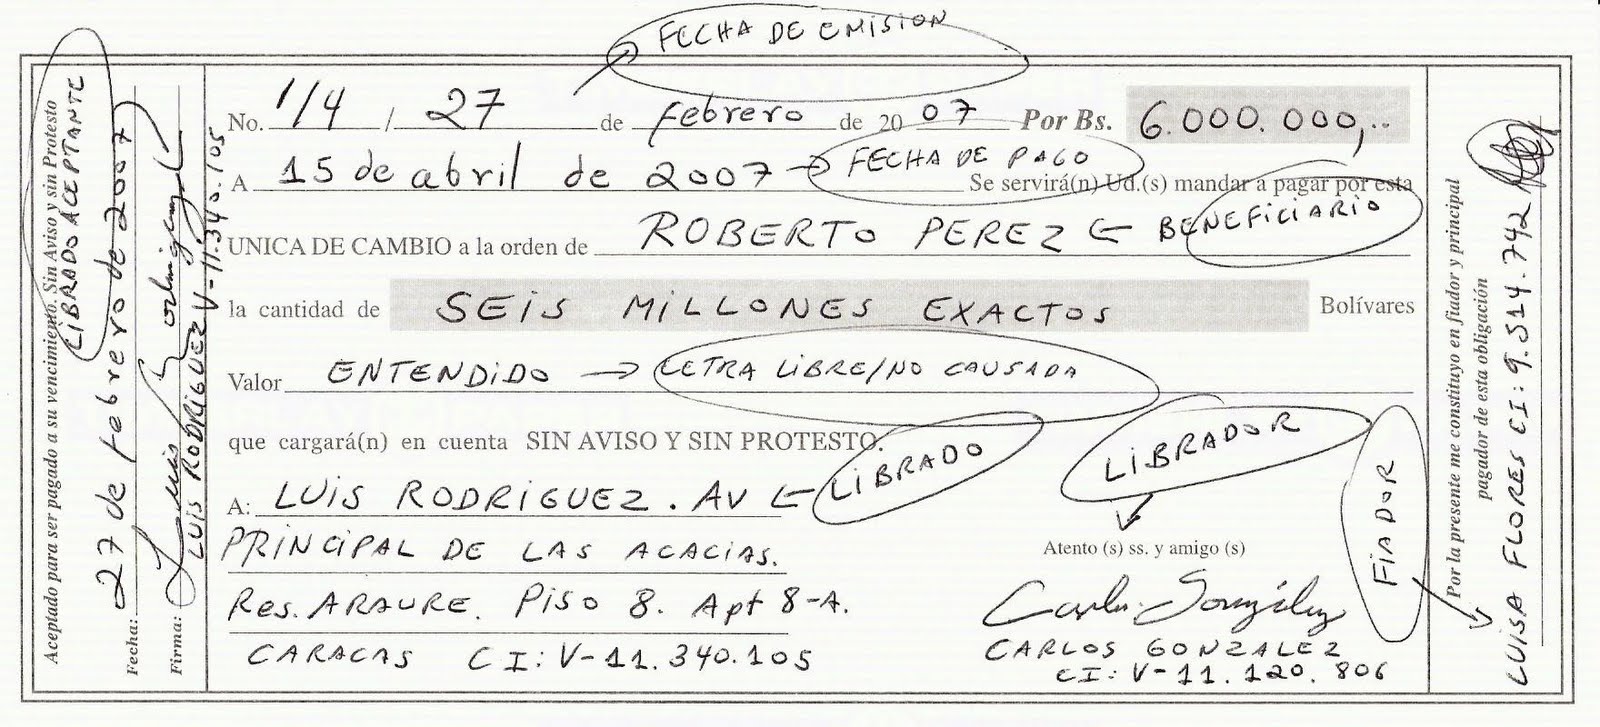 FECHA DE EMISION
No. 1/4 / 27 de febrero de 20 07 Por Bs. 6.000.000,..
A 15 de abril de 2007 FECHA DE PAGO Se servirá(n) Ud.(s) mandar a pagar por esta
UNICA DE CAMBIO a la orden de ROBERTO PEREZ BENEFICIARIO
la cantidad de SEIS MILLONES EXACTOS Bolívares
Valor ENTENDIDO LETRA LIBRE/NO CAUSADA
que cargará(n) en cuenta SIN AVISO Y SIN PROTESTO.
LIBRADO
LIBRADOR
A: LUIS RODRIGUEZ. AV
PRINCIPAL DE LAS ACACIAS.
Res. ARAURE. PISO 8. Apt 8-A.
CARACAS CI: V-11.340.105
Atento (s) ss. y amigo (s)
Carlos González
CARLOS GONZALEZ
CI: V-11.120.806
Aceptado para ser pagado a su vencimiento. Sin Aviso y sin Protesto
LIBRADO ACEPTANTE
Fecha: 27 de febrero de 2007
Firma: Luis Rodriguez
LUIS RODRIGUEZ V-11.340.105
FIADOR
Por la presente me constituyo en fiador y principal
pagador de esta obligación
LUISA FLORES CI: 9.514.742